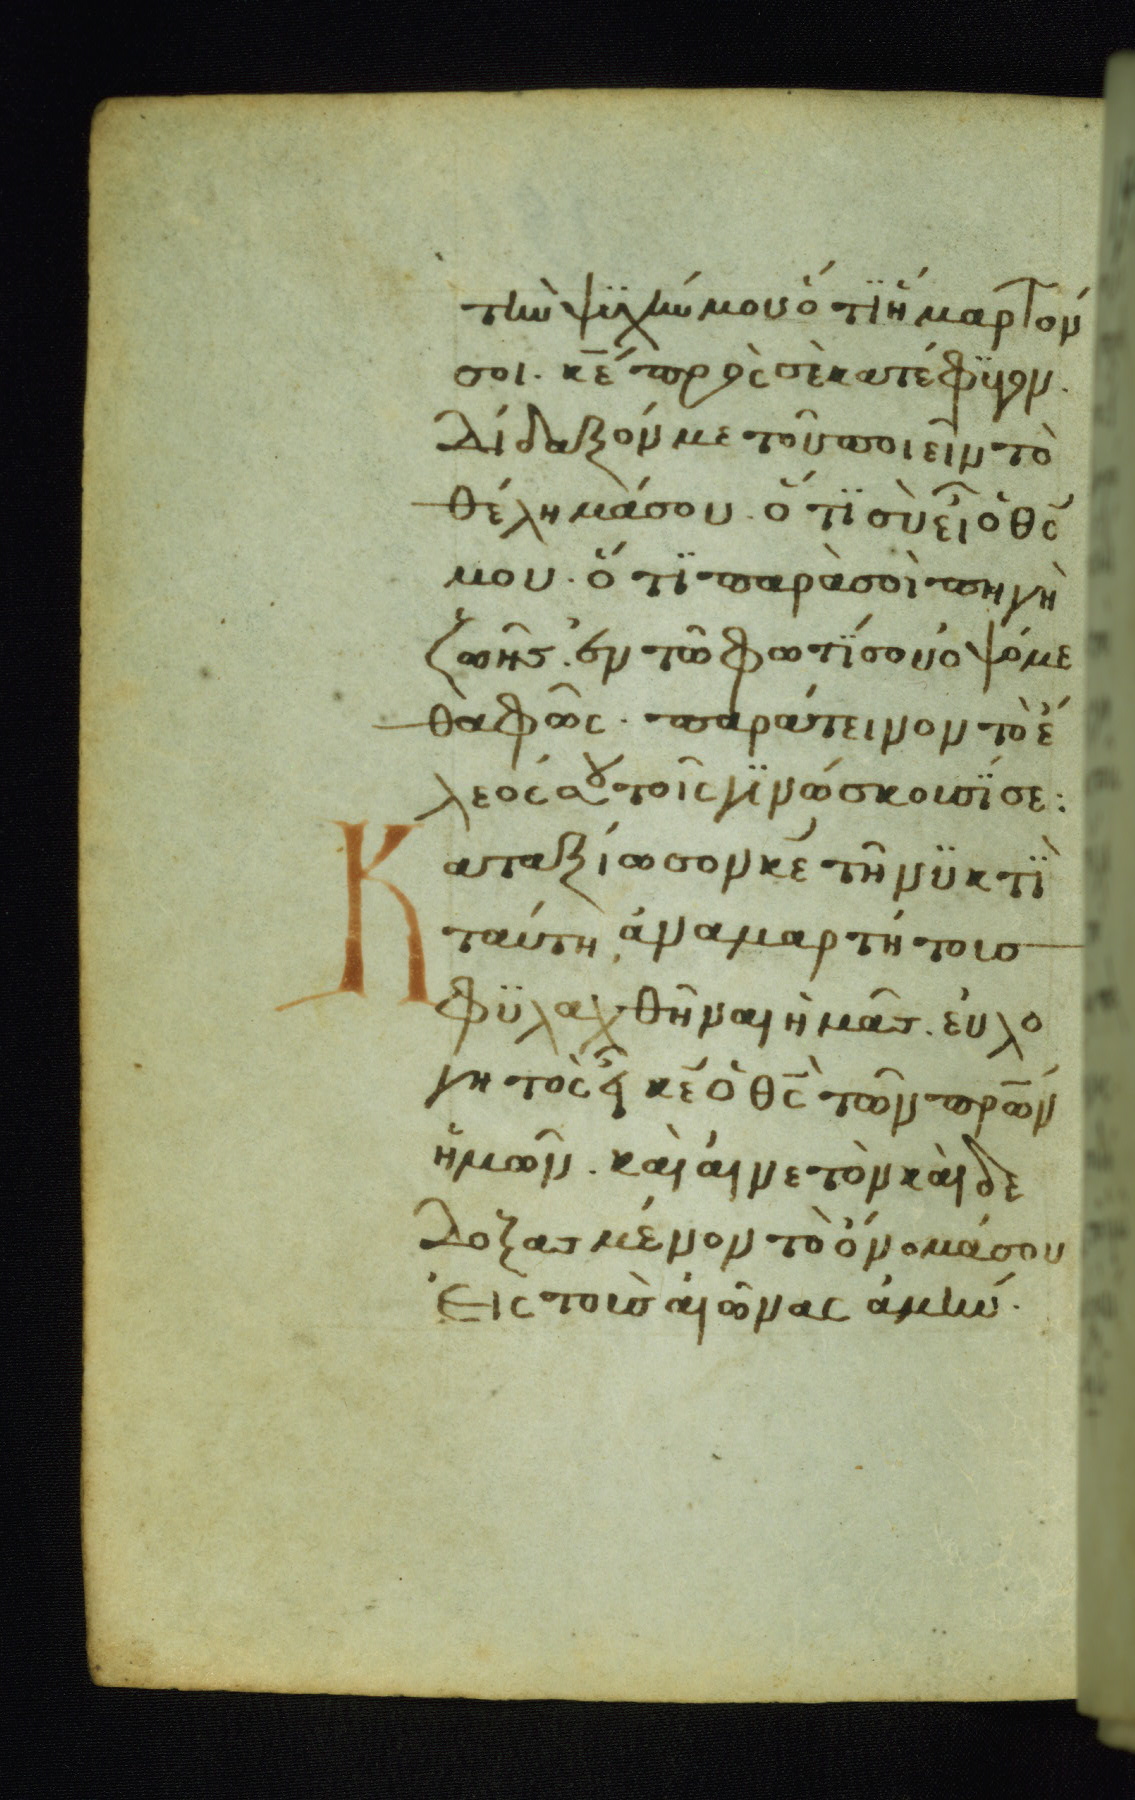 τὴν ψϋχήν μου ὅτϊ ἥμαρτόν
σοι. κ̅ε̅ πρὸς σὲ κατέφϋγον.
Δίδαξόν με τοῦ ποιεῖν τὸ
θέλημάσου. ὅτϊ σὺ εἶ ὁ θ̅ς̅
μου. ὅτϊ παρὰ σοὶ πηγὴ
ζωῆς. ἐν τῶ φωτΐ σου ὀψόμε
θα φῶς. παράτεινον τὸ ἔ
λεόςσου τοῖς γϊνώσκουσΐ σε:
Καταξίωσον κ̅ε̅ τῆ νϋκτῒ
ταύτη, ἀναμαρτήτους
φϋλαχθῆναι ἡμᾶς. εὐλο
γητὸς εἶ κ̅ε̅ ὁ θ̅ς̅ τῶν πρ̅ων
ἡμῶν. καὶ αἰνετὸν καὶ δε
δοξασμένον τὸ ὄνομάσου
εἰς τοὺς αἰῶνας ἀμήν.